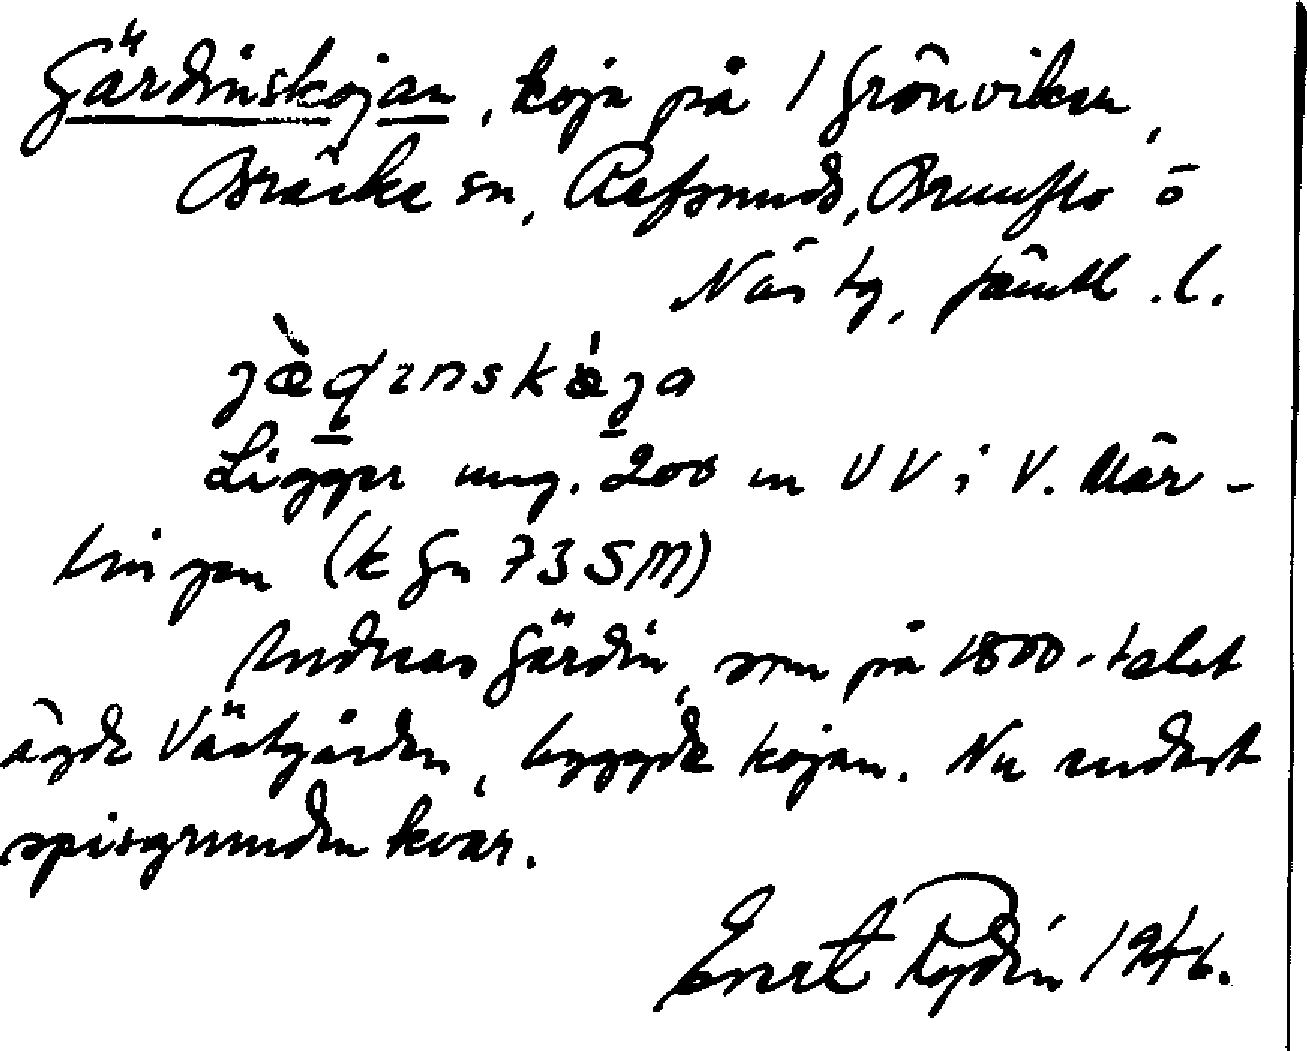 Gärdinskojan, koja på 1 Grönviken,
Bräcke sn, Refsunds, Brunflo o
Näs tg, Jämtl. l.
Ligger ung. 200 m VV i V. Mär-
tningen (k Gn 735M)
Andreas Gärdin, som på 1800-talet
ägde Västgården, byggde kojan. Nu endast
spisgrunden kvar.
1946.